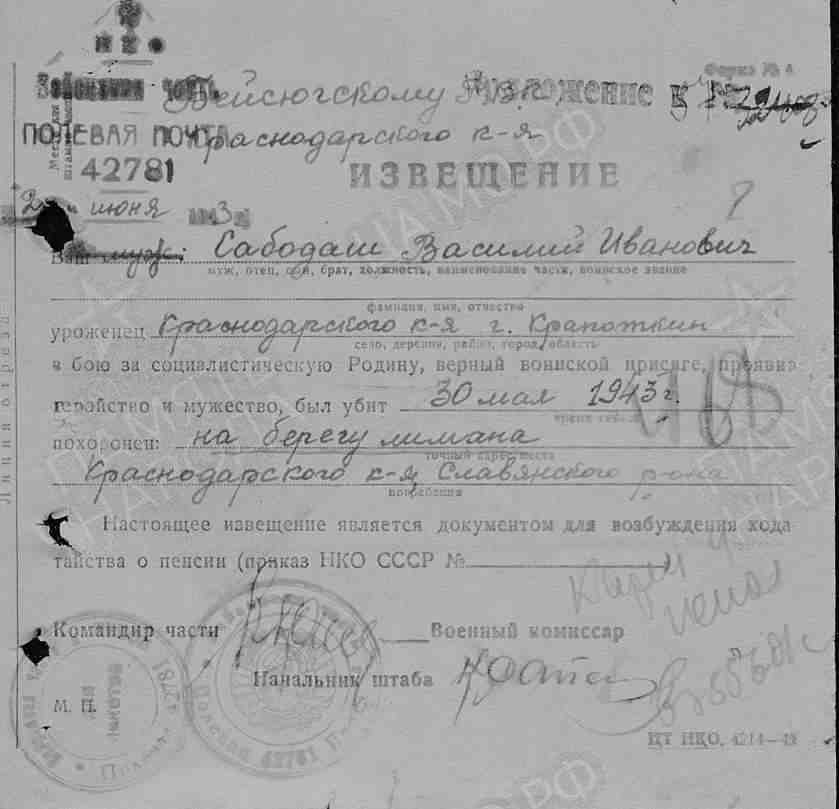 Форма № 4
Бейсюгскому Р.В.К. Приложение к
ПОЛЕВАЯ ПОЧТА Краснодарского к-я
42781
ИЗВЕЩЕНИЕ
июня 1943 г.
Ваш муж: Сабодаш Василий Иванович
муж, отец, сын, брат, должность, наименование части, воинское звание
фамилия, имя, отчество
уроженец Краснодарского к-я г. Крапоткин
село, деревня, район, город, область
в бою за социалистическую Родину, верный воинской присяге, проявив
геройство и мужество, был убит 30 мая 1943 г.
время гибели
похоронен: на берегу лимана
точный адрес места
Краснодарского к-я, Славянского р-она
погребения
Настоящее извещение является документом для возбуждения хода-
тайства о пенсии (приказ НКО СССР № )
Командир части Военный комиссар
Начальник штаба
М. П.
ЦТ НКО. 4214—43
Линия отреза